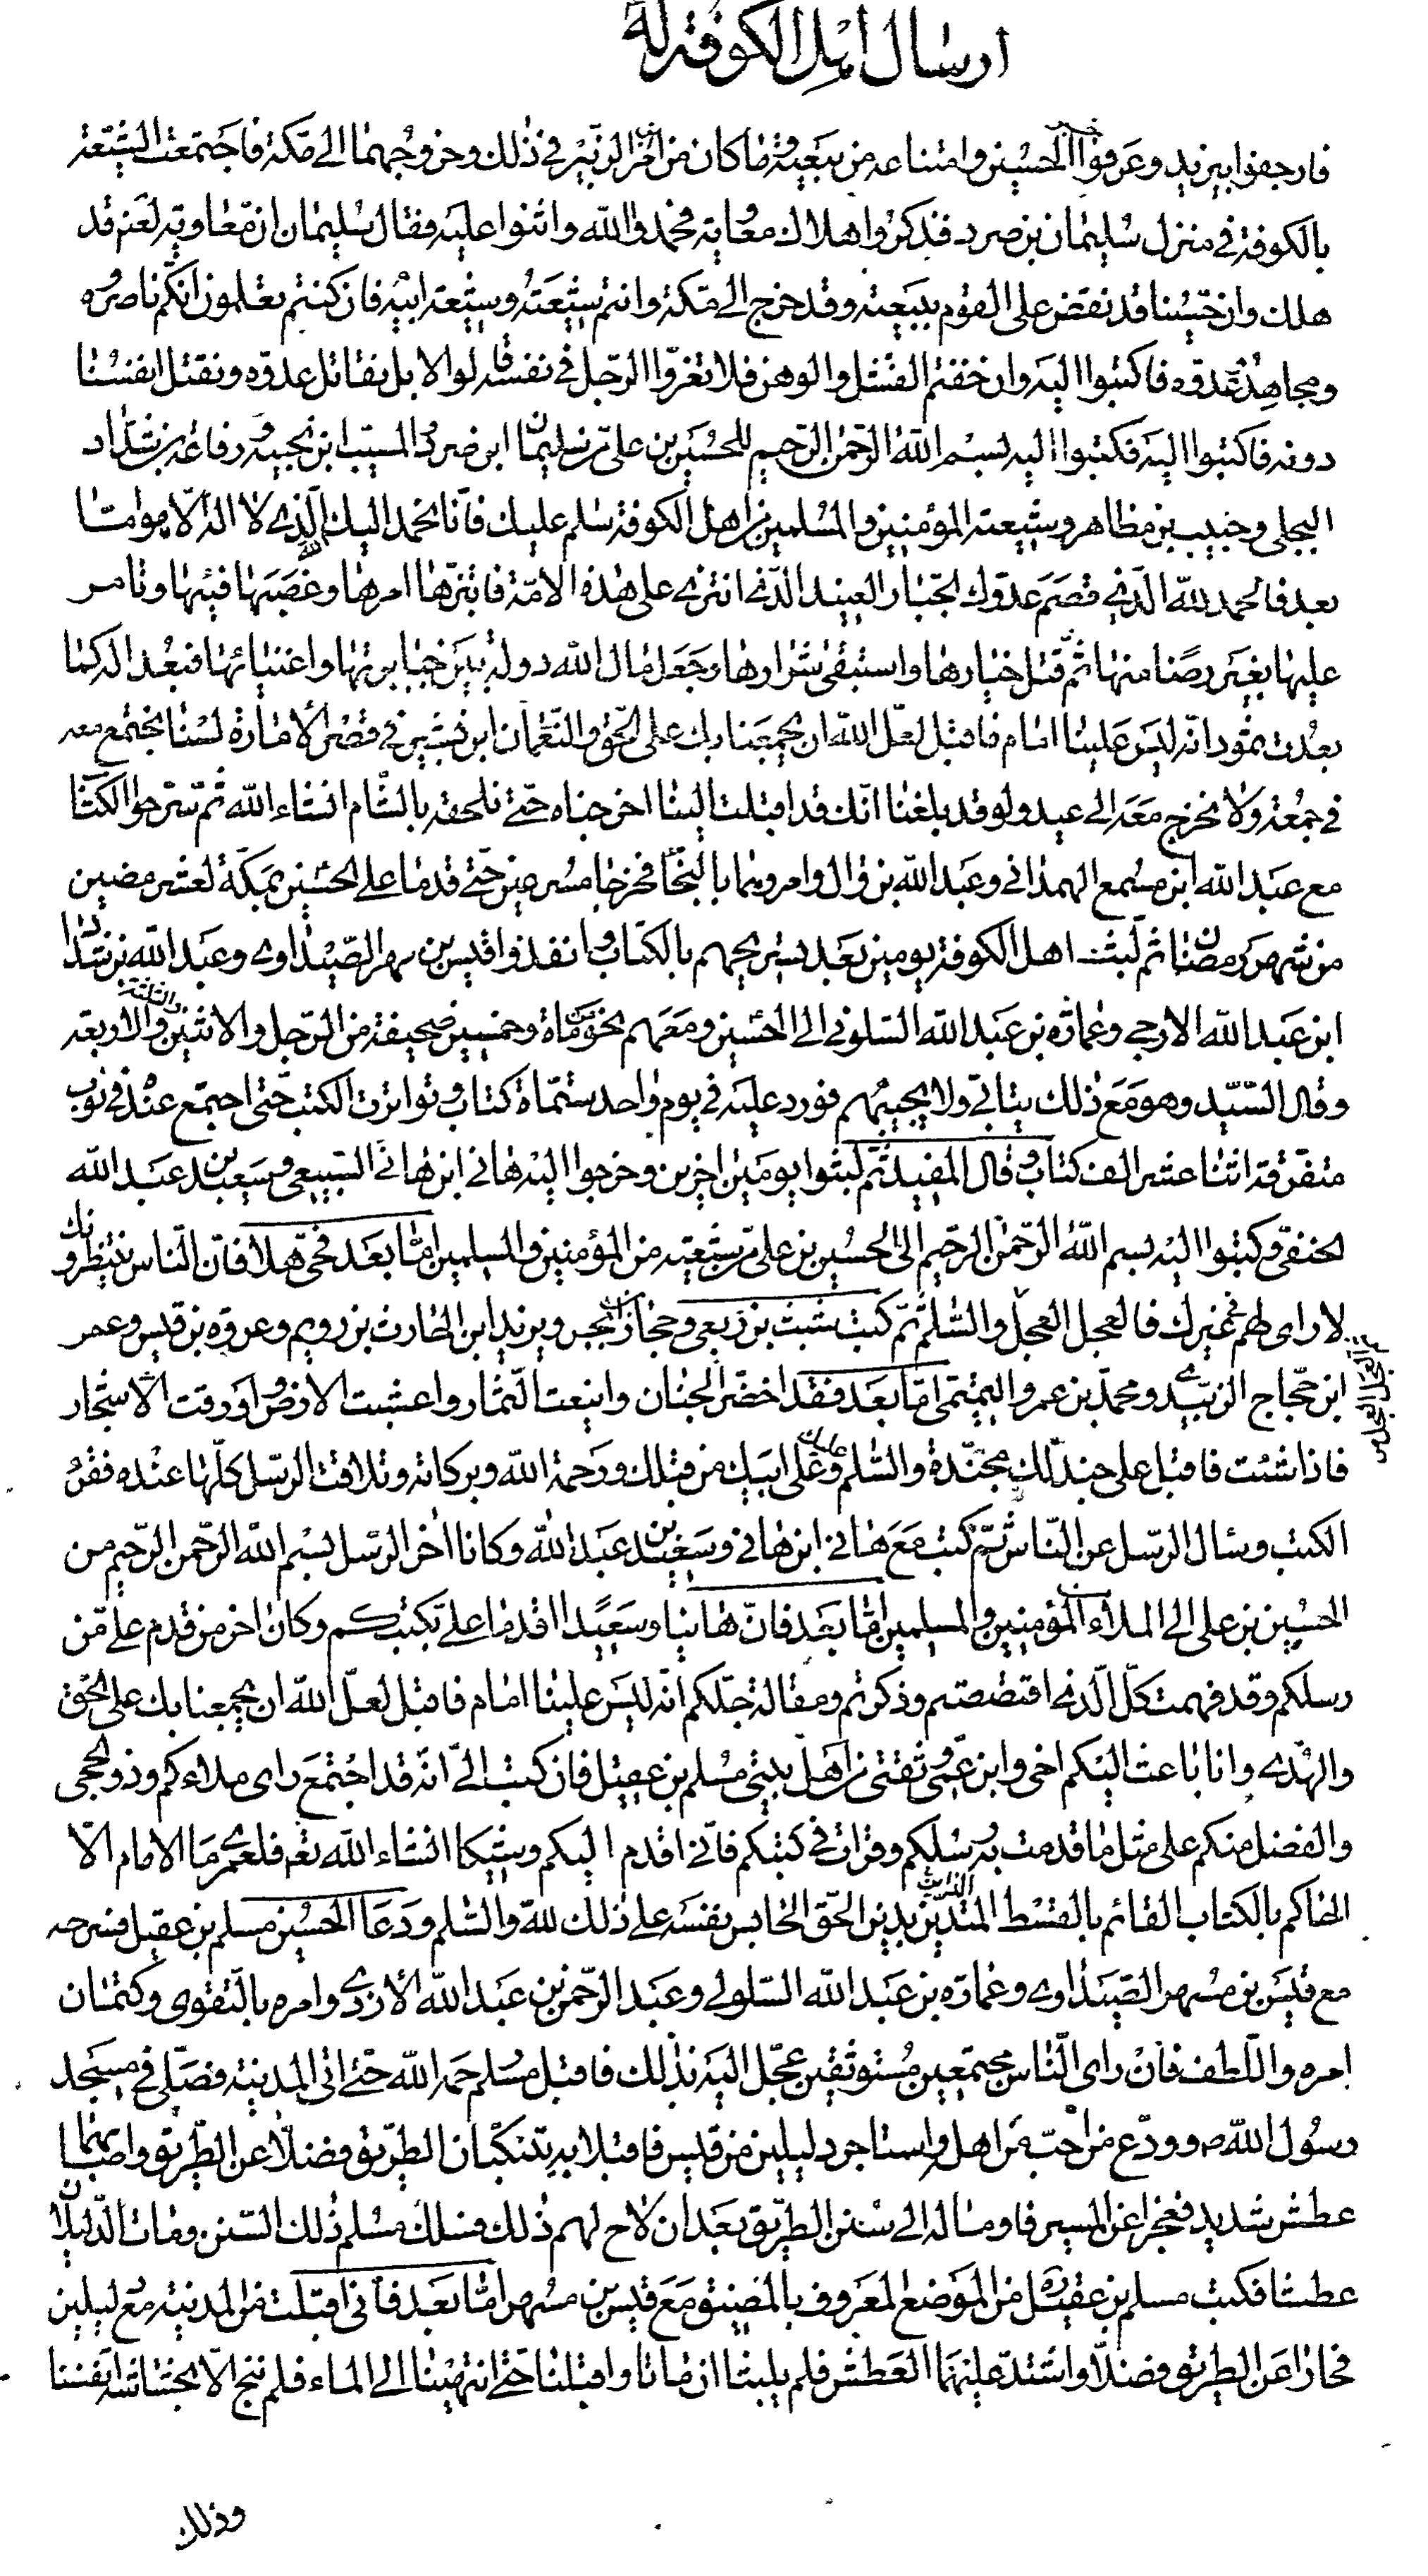 ارسال اهل الكوفة له
فارجفوا بيزيد وعرفوا خبر الحسين وامتناعه من بيعته وما كان من امر ابن الزبير في ذلك وخروجهما الى مكة فاجتمعت الشيعة
بالكوفة في منزل سليمان بن صرد فذكروا هلاك معوية فحمدوا الله واثنوا عليه فقال سليمان ان معاوية لعنه قد
هلك وان حسينا قد نقض على القوم ببيعته وقد خرج الى مكة وانتم شيعته وشيعة ابيه فان كنتم تعلمون انكم ناصروه
ومجاهدو عدوه فاكتبوا اليه وان خفتم الفشل والوهن فلا تغروا الرجل في نفسه قالوا لا بل نقاتل عدوه ونقتل انفسنا
دونه فاكتبوا اليه فكتبوا اليه بسم الله الرحمن الرحيم للحسين بن علي من سليمان ابن صرد والمسيب ابن نجية ورفاعة بن شداد
البجلي وحبيب بن مظاهر وشيعته المؤمنين والمسلمين من اهل الكوفة سلم عليك فانا نحمد اليك الله الذي لا اله الا هو اما
بعد فالحمد لله الذي قصم عدوك الجبار العنيد الذي انتزى على هذه الامة فابتزها امرها وغصبها فيئها وتامر
عليها بغير رضا منها ثم قتل خيارها واستبقى شرارها وجعل مال الله دولة بين جبابرتها واغنيائها فبعدا له كما
بعدت ثمود انه ليس علينا امام فاقبل لعل الله ان يجمعنا بك على الحق والنعمان ابن بشير في قصر الامارة لسنا نجتمع معه
في جمعة ولا نخرج معه الى عيد ولو قد بلغنا انك قد اقبلت الينا اخرجناه حتى نلحقه بالشام انشاء الله ثم سرحوا الكتاب
مع عبد الله ابن مسمع الهمداني وعبد الله بن وال وامروهما بالنجا فخرجا مسرعين حتى قدما على الحسين بمكة لعشر مضين
من شهر رمضان ثم لبث اهل الكوفة يومين بعد تسريحهم بالكتاب وانفذوا قيس بن مسهر الصيداوي وعبد الله بن شداد
ابن عبد الله الارحبي وعمارة بن عبد الله السلولي الى الحسين ومعهم نحو من مأة وخمسين صحيفة من الرجل والاثنين والثلثة والاربعة
وقال السيد وهو مع ذلك يتابى ولا يجيبهم فورد عليه في يوم واحد ستمأة كتاب وتواترت الكتب حتى اجتمع عنده في نوب
متفرقة اثنا عشر الف كتاب وقال المفيد ثم لبثوا يومين اخرين وخرجوا اليه هاني ابن هاني السبيعي وسعيد بن عبد الله
الحنفي وكتبوا اليه بسم الله الرحمن الرحيم الى الحسين بن علي من شيعته من المؤمنين والمسلمين اما بعد فحي هلا فان الناس ينتظرونك
لا راى لهم في غيرك فالعجل العجل والسلم ثم كتب شبث بن ربعي وحجار بن ابجر ويزيد ابن الحارث بن رويم وعروة بن قيس وعمر
ثم العجل العجل
ابن حجاج الزبيدي ومحمد بن عمرو التيمي اما بعد فقد اخضر الجنان واينعت الثمار واعشبت الارض واورقت الاشجار
فاذا شئت فاقبل على جند لك مجندة والسلم عليك وعلى ابيك من قبلك ورحمة الله وبركاته وتلاقت الرسل كلها عنده فقرء
الكتب وسال الرسل عن الناس ثم كتب مع هاني ابن هاني وسعيد بن عبد الله وكانا اخر الرسل بسم الله الرحمن الرحيم من
الحسين بن علي الى الملاء من المؤمنين والمسلمين اما بعد فان هانيا وسعيدا قدما علي بكتبكم وكان اخر من قدم علي من
رسلكم وقد فهمت كل الذي اقتصصتم وذكرتم ومقالة جلكم انه ليس علينا امام فاقبل لعل الله ان يجمعنا بك على الحق
والهدى وانا باعث اليكم اخي وابن عمي وثقتي من اهل بيتي مسلم بن عقيل فان كتب الي انه قد اجتمع راى ملاءكم وذو الحجى
والفضل منكم على مثل ما قدمت به رسلكم وقرات في كتبكم فاني اقدم اليكم وشيكا انشاء الله تعه فلعمري ما الامام الا
الحاكم بالكتاب القائم بالقسط الدائن بدين الحق الحابس نفسه على ذلك لله والسلم ودعا الحسين مسلم بن عقيل فسرحه
مع قيس بن مسهر الصيداوي وعمارة بن عبد الله السلولي وعبد الرحمن بن عبد الله الازدي وامره بالتقوى وكتمان
امره واللطف فان راى الناس مجتمعين مستوثقين عجل اليه بذلك فاقبل مسلم رحمه الله حتى اتى المدينة فصلى في مسجد
رسول الله ص وودع من احب من اهله واستاجر دليلين من قيس فاقبلا به يتنكبان الطريق فضلا عن الطريق واصابهما
عطش شديد فعجزا عن المسير فاومأ له الى سنن الطريق بعد ان لاح لهم ذلك فسلك مسلم ذلك السنن ومات الدليلان
عطشا فكتب مسلم بن عقيل ره من الموضع المعروف بالمضيق مع قيس بن مسهر اما بعد فاني اقبلت من المدينة مع دليلين
فحازا عن الطريق فضلا واشتد علينا العطش فلم يلبثا ان ماتا واقبلنا حتى انتهينا الى الماء فلم ننج الا بحشاشة انفسنا
وذلك